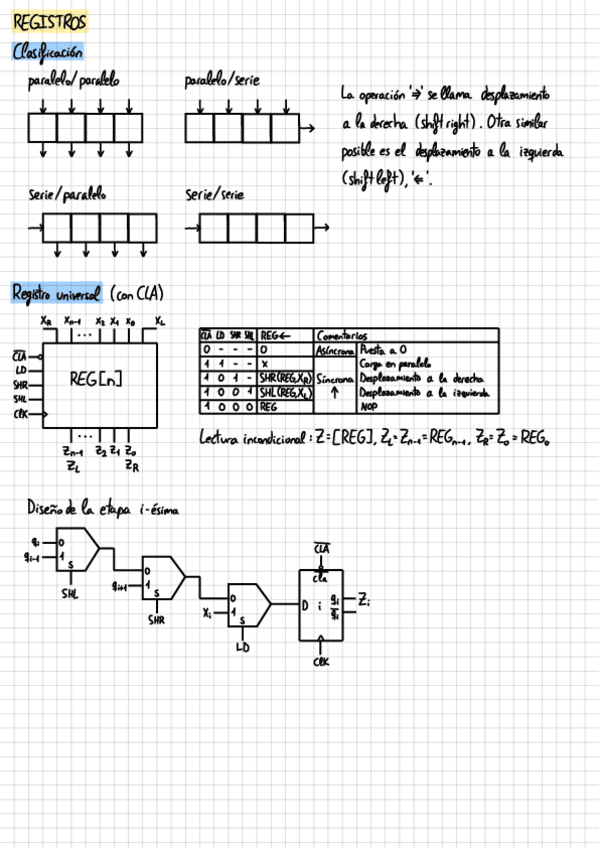 REGISTROS
Clasificación
paralelo/paralelo
paralelo/serie
La operación '→' se llama desplazamiento
a la derecha (shift right). Otra similar
posible es el desplazamiento a la izquierda
(shift left), '←'.
serie/paralelo
serie/serie
Registro universal (con CLA)
X_R X_n-1 ... X_2 X_1 X_0 X_L
C̅L̅A̅
LD
SHR
SHL
CLK
REG[n]
Z_n-1 ... Z_2 Z_1 Z_0
Z_L Z_R
C̅L̅A̅ LD SHR SHL REG← Comentarios
0 - - - 0 Asíncrona Puesta a 0
1 1 - - X Carga en paralelo
1 0 1 - SHR(REG,X_R) Síncrona Desplazamiento a la derecha
1 0 0 1 SHL(REG,X_L) ↑ Desplazamiento a la izquierda
1 0 0 0 REG NOP
Lectura incondicional: Z=[REG], Z_L=Z_n-1=REG_n-1, Z_R=Z_0=REG_0
Diseño de la etapa i-ésima
q_i 0
q_i-1 1
S
SHL
0
q_i+1 1
S
SHR
0
X_i 1
S
LD
C̅L̅A̅
cla
D i q_i Z_i
q̅_i
CLK